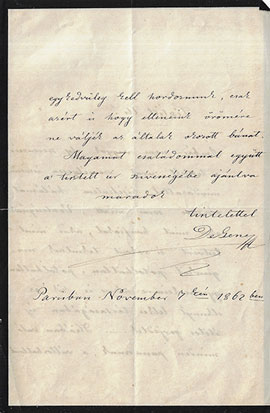 egykedvüleg kell hordoznunk, csak
azért is hogy elleneink örömére
ne váljék az általuk okozott bánat.
Magamat családommal együtt
a tisztelt úr szivességébe ajánlva
maradok
tisztelettel
De Gerse
Párisban November 7 kén 1862 ben